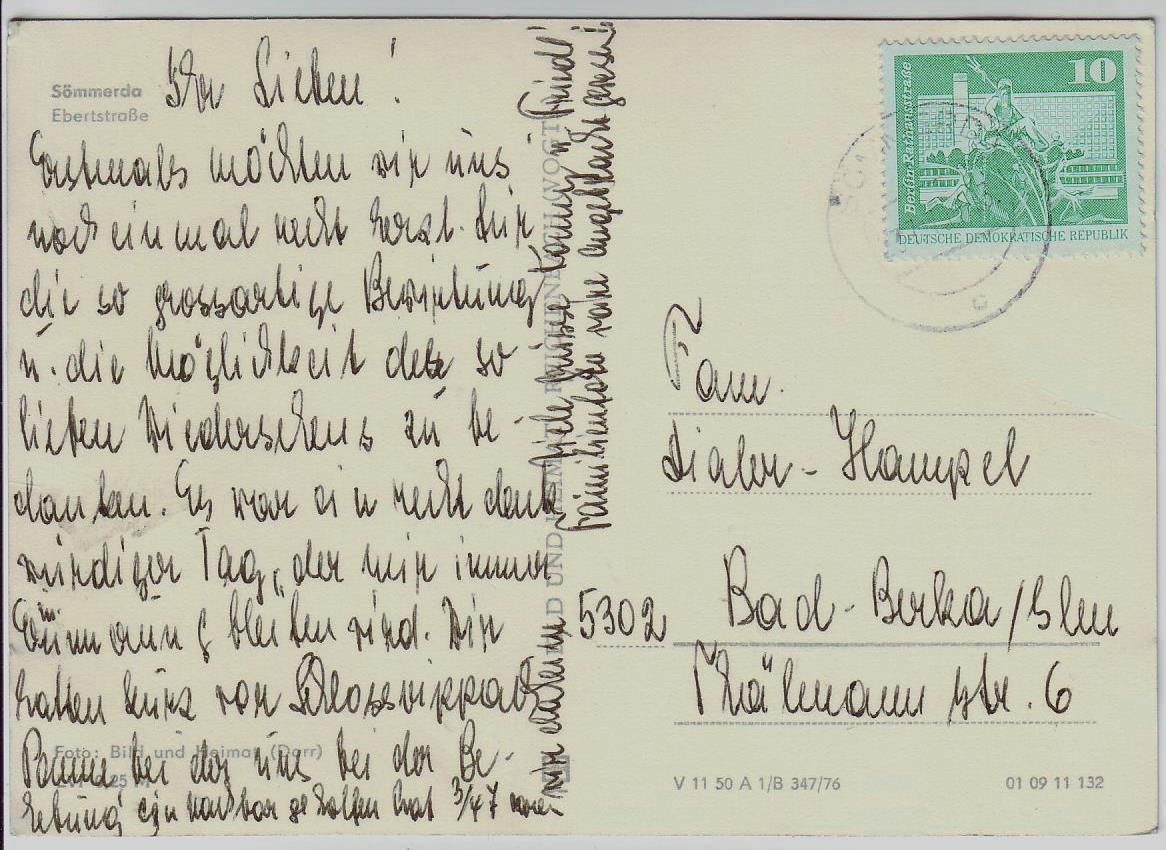 Sömmerda
Ebertstraße
Ihr Lieben!
Erstmals möchten wir uns
noch einmal recht herzl. für
die so grossartige Bewirtung
u. die Möglichkeit des so
lieben Wiedersehens zu be-
danken. Es war ein recht denk
würdiger Tag, der mir immer
in Erinnerung bleiben wird. Wir
hatten kurz vor Schlossvippach
Panne bei der uns bei der Be-
hebung ein Nachbar geholfen hat 3/4 7 waren
wir daheim. Viele Grüsse
Familienfoto
Foto: Bild und Heimat (Darr)
BILD UND HEIMAT REICHENBACH (VOGTL)
10
Berlin-Rathausstraße
DEUTSCHE DEMOKRATISCHE REPUBLIK
c
Fam.
Hampel
5302 Bad-Berka/Ilm
Thälmannstr. 6
V 11 50 A 1/B 347/76
01 09 11 132